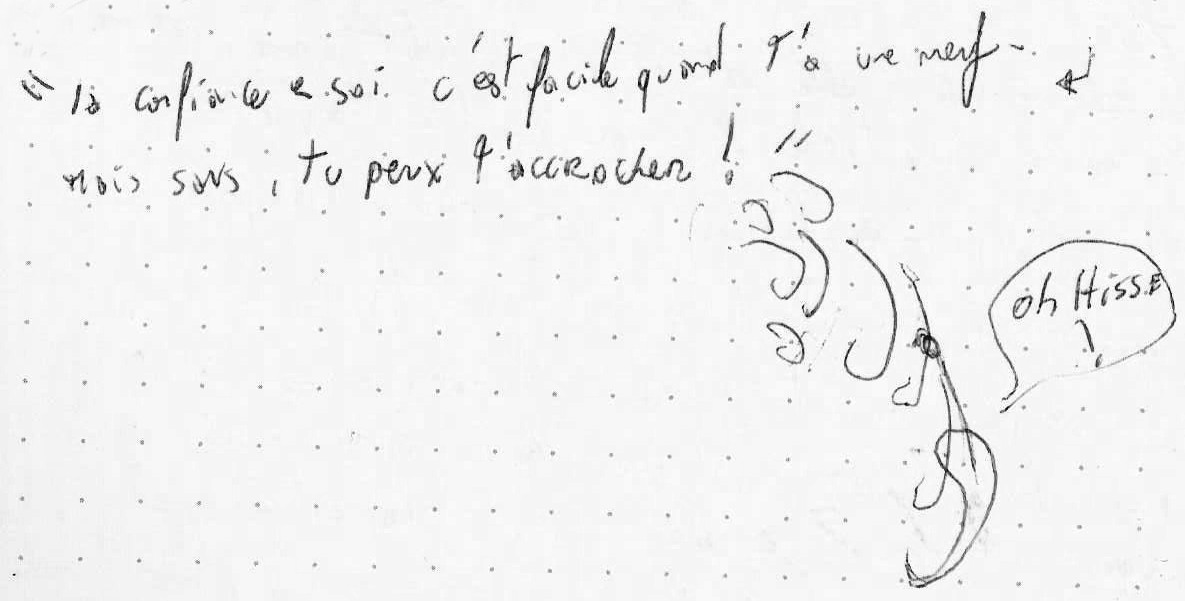 "la confiance e soi. c'est facile quand t'a une meuf-
mais sans, tu peux t'accrocher !"
oh Hisse
!